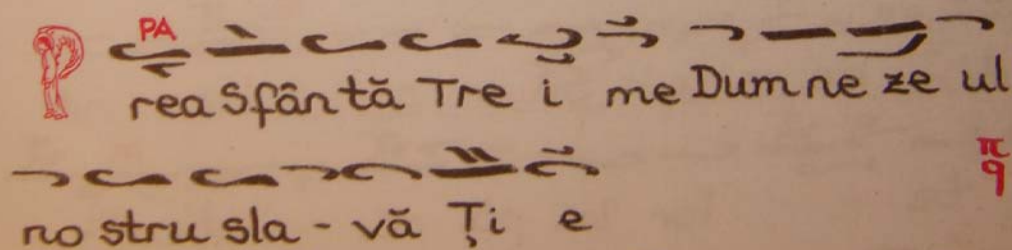 PA
Prea Sfântă Tre i me Dum ne ze ul
π q
no stru sla - vă Ți e